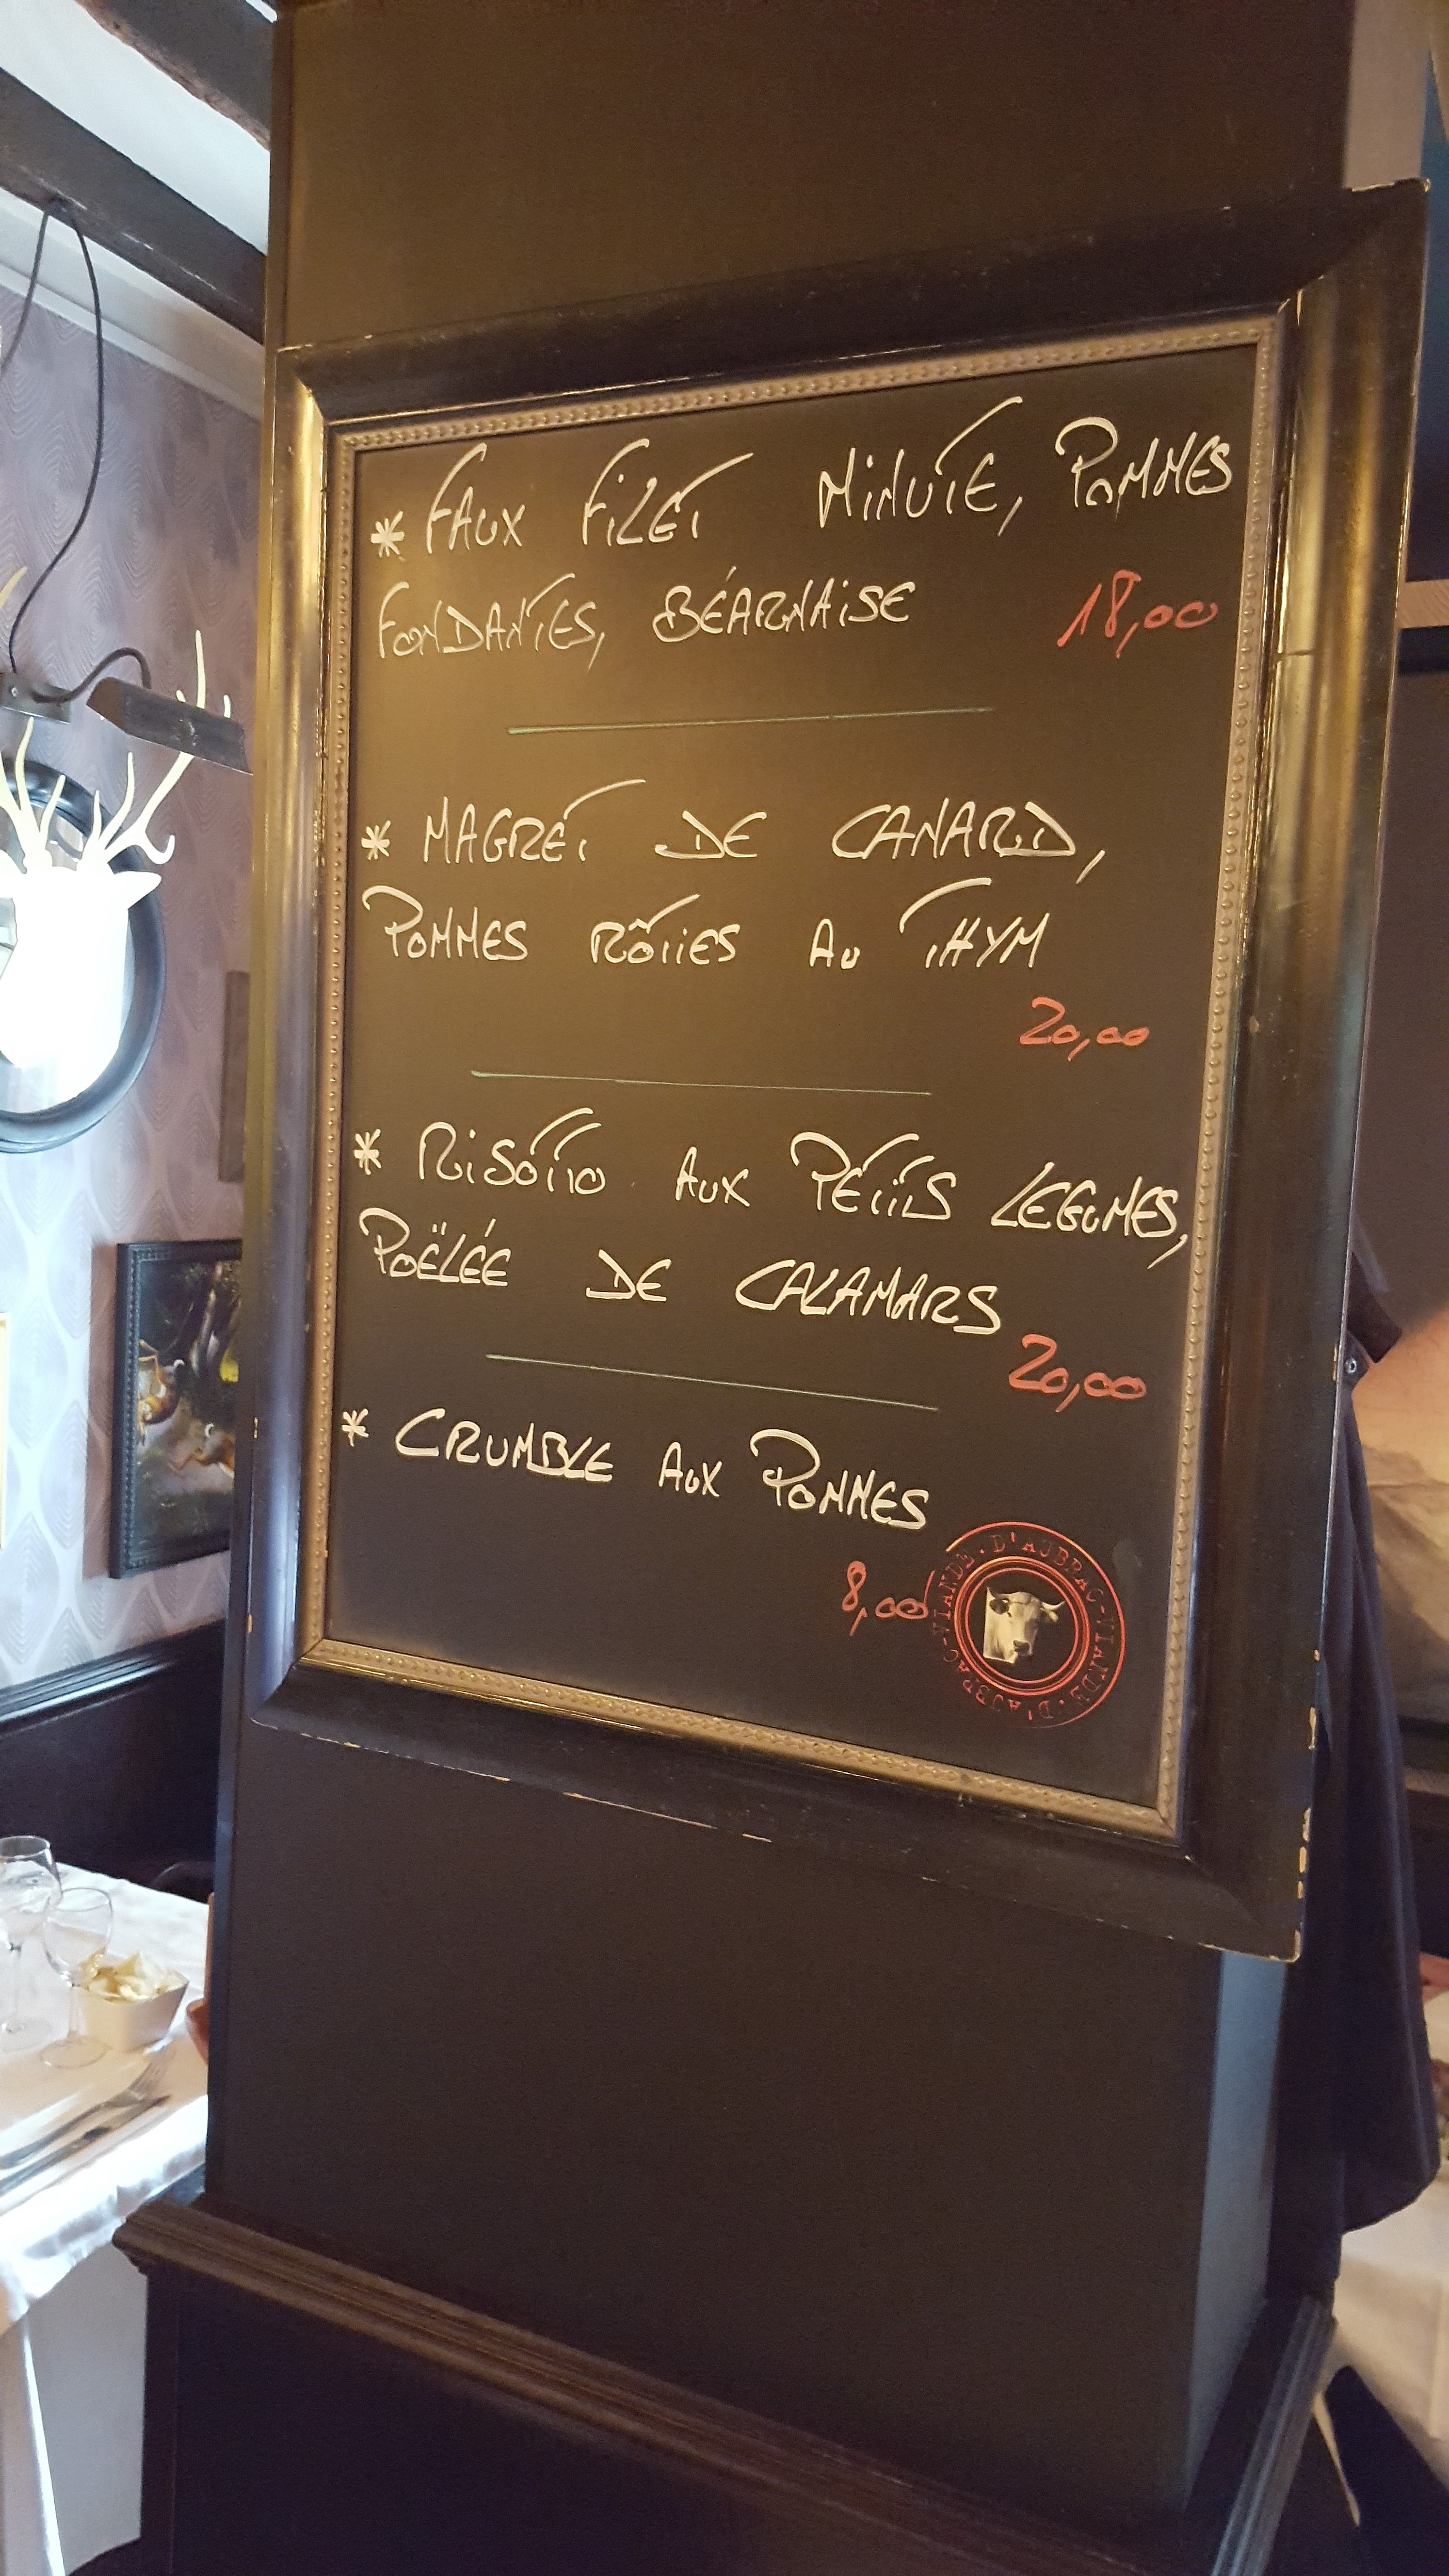 * FAUX FILET MINUTE, POMMES
FONDANTES, BÉARNAISE 18,00
* MAGRET DE CANARD,
POMMES RÔTIES AU THYM
20,00
* RISOTTO AUX PETITS LEGUMES,
POËLÉE DE CALAMARS
20,00
* CRUMBLE AUX POMMES
8,00
VIANDE · D'AUBRAC - VIANDE · D'AUBRAC -